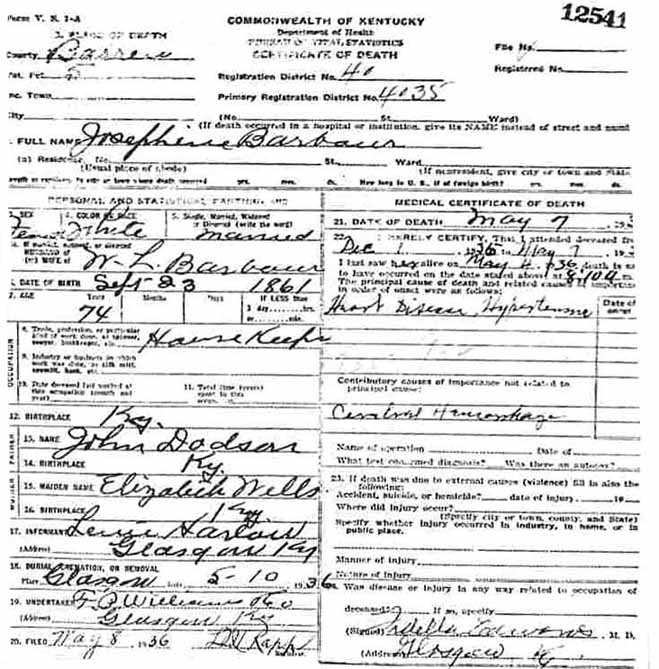 Form V. S. 1-A
COMMONWEALTH OF KENTUCKY
12541
1. PLACE OF DEATH
Department of Health
BUREAU OF VITAL STATISTICS
County Barren
CERTIFICATE OF DEATH
File No.
Vot. Pct. 2
Registration District No. 40
Registered No.
Inc. Town
Primary Registration District No. 4035
City (No. St. Ward)
(If death occurred in a hospital or institution, give its NAME instead of street and numb
FULL NAME Josephene Barbour
(a) Residence, No. St. Ward.
(Usual place of abode)
(If nonresident, give city or town and State
Length of residence in city or town where death occurred yrs. mos. ds. How long in U. S., if of foreign birth? yrs. mos. ds.
PERSONAL AND STATISTICAL PARTICULARS
3. SEX
4. COLOR OR RACE White
5. Single, Married, Widowed
or Divorced (write the word)
Married
5a. If married, widowed, or divorced
HUSBAND of
(or) WIFE of W. L. Barbour
6. DATE OF BIRTH Sept 23 1861
7. AGE Years Months Days If LESS than
74
1 day, hrs.
or min.
OCCUPATION
8. Trade, profession, or particular
kind of work done, as spinner,
sawyer, bookkeeper, etc.
House Keeper
9. Industry or business in which
work was done, as silk mill,
sawmill, bank, etc.
10. Date deceased last worked at
this occupation (month and
year)
11. Total time (years)
spent in this
occupation
12. BIRTHPLACE Ky.
FATHER
13. NAME John Dodson
14. BIRTHPLACE Ky.
MOTHER
15. MAIDEN NAME Elizabeth Wells
16. BIRTHPLACE Ky
17. INFORMANT Harlow
(Address) Glasgow Ky
18. BURIAL, CREMATION, OR REMOVAL
Place Glasgow Date 5-10 1936
19. UNDERTAKER F. B. Williams & Co
(Address) Glasgow Ky
20. FILED May 8 1936 Rapp
MEDICAL CERTIFICATE OF DEATH
21. DATE OF DEATH May 7, 193
22. I HEREBY CERTIFY, That I attended deceased from
Dec 1 1935 to May 7, 193
I last saw her alive on May 4, 1936 death is sa
to have occurred on the date stated above at m
The principal cause of death and related causes of importance
in order of onset were as follows:
Date of
onset
Heart Disease, Hypertensive
Contributory causes of importance not related to
principal cause:
Cerebral Hemorrhage
Name of operation Date of
What test confirmed diagnosis? Was there an autopsy?
23. If death was due to external causes (violence) fill in also the
following:
Accident, suicide, or homicide? date of injury 19
Where did injury occur?
(Specify city or town, county, and State)
Specify whether injury occurred in industry, in home, or in
public place.
Manner of injury
Nature of injury
24. Was disease or injury in any way related to occupation of
deceased? If so, specify
(Signed) Edwards M. D.
(Address) Glasgow Ky